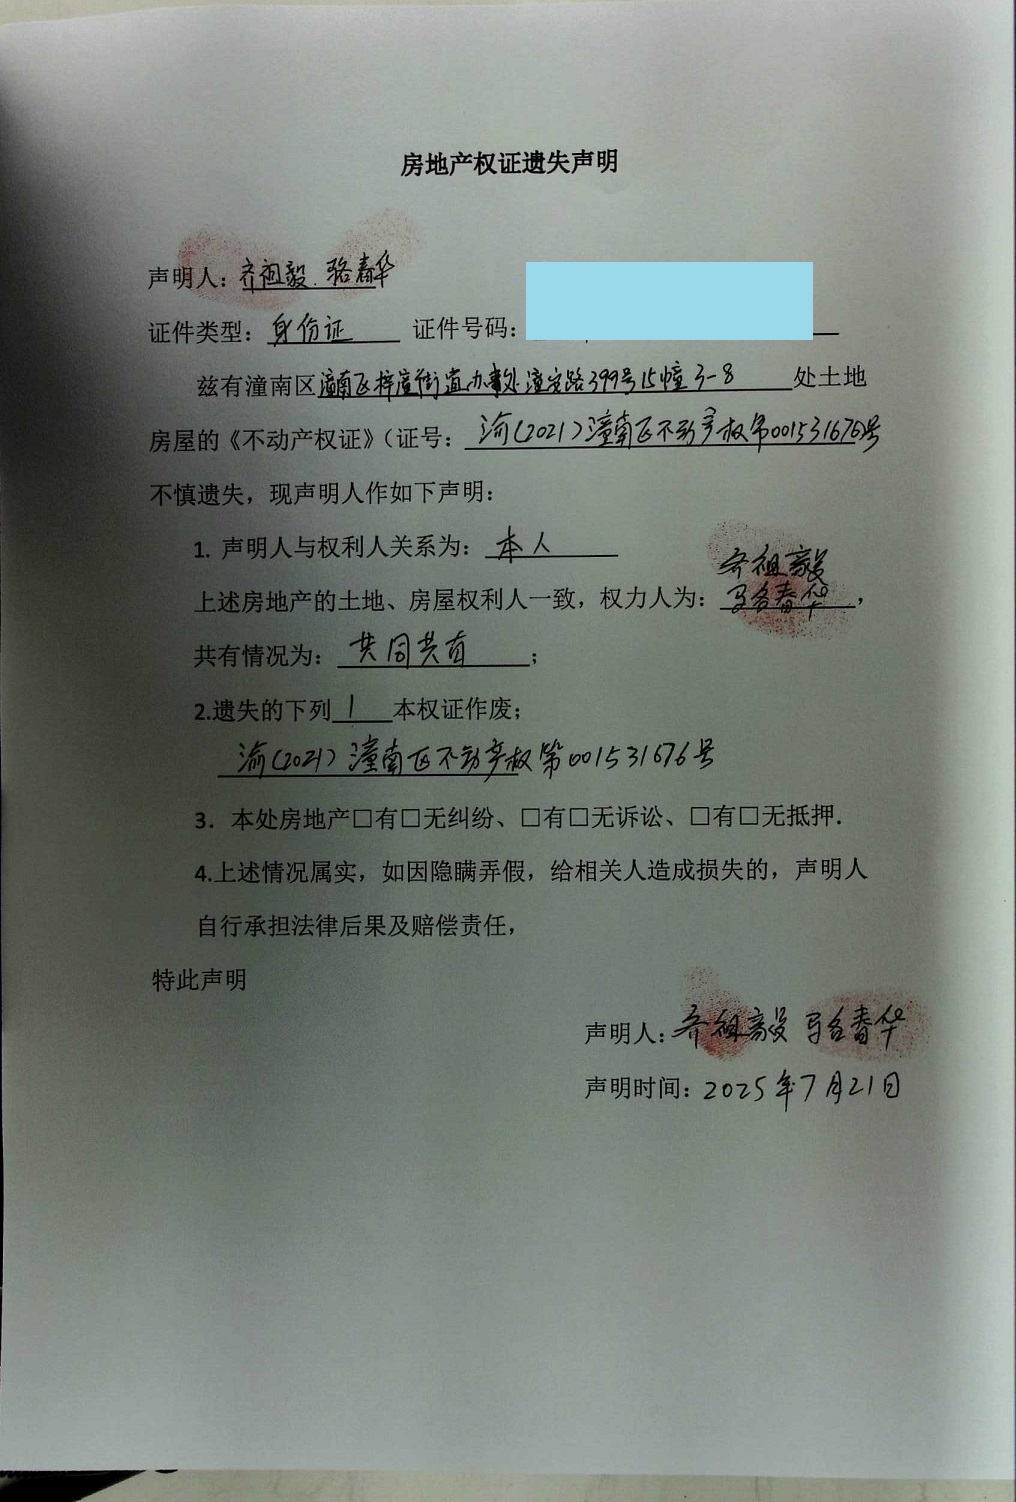 房地产权证遗失声明
声明人：齐祖毅、骆春华
证件类型：身份证 证件号码：
兹有潼南区潼南区梓潼街道办事处潼安路399号15幢3-8处土地
房屋的《不动产权证》（证号：渝(2021)潼南区不动产权第001531676号
不慎遗失，现声明人作如下声明：
1. 声明人与权利人关系为：本人
齐祖毅
上述房地产的土地、房屋权利人一致，权力人为：骆春华，
共有情况为：共同共有；
2.遗失的下列1本权证作废；
渝(2021)潼南区不动产权第001531676号
3．本处房地产□有□无纠纷、□有□无诉讼、□有□无抵押.
4.上述情况属实，如因隐瞒弄假，给相关人造成损失的，声明人
自行承担法律后果及赔偿责任，
特此声明
声明人：齐祖毅 骆春华
声明时间：2025年7月21日